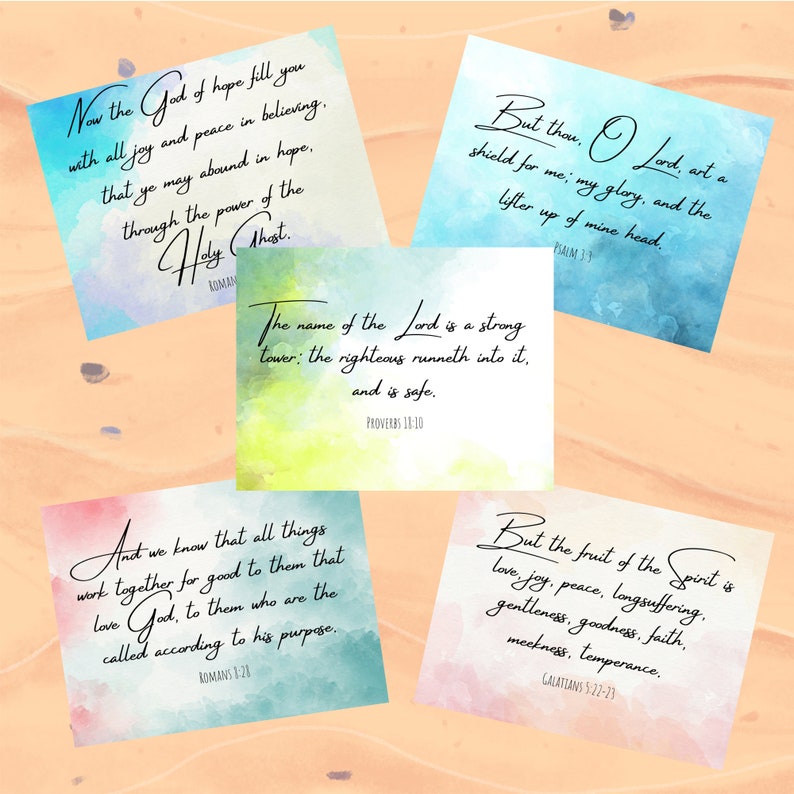 Now the God of hope fill you
with all joy and peace in believing,
that ye may abound in hope,
through the power of the
Holy Ghost.
But thou, O Lord, art a
shield for me; my glory, and the
lifter up of mine head.
Psalm 3:3
The name of the Lord is a strong
tower: the righteous runneth into it,
and is safe.
Proverbs 18:10
And we know that all things
work together for good to them that
love God, to them who are the
called according to his purpose.
Romans 8:28
But the fruit of the Spirit is
love, joy, peace, longsuffering,
gentleness, goodness, faith,
meekness, temperance.
Galatians 5:22-23